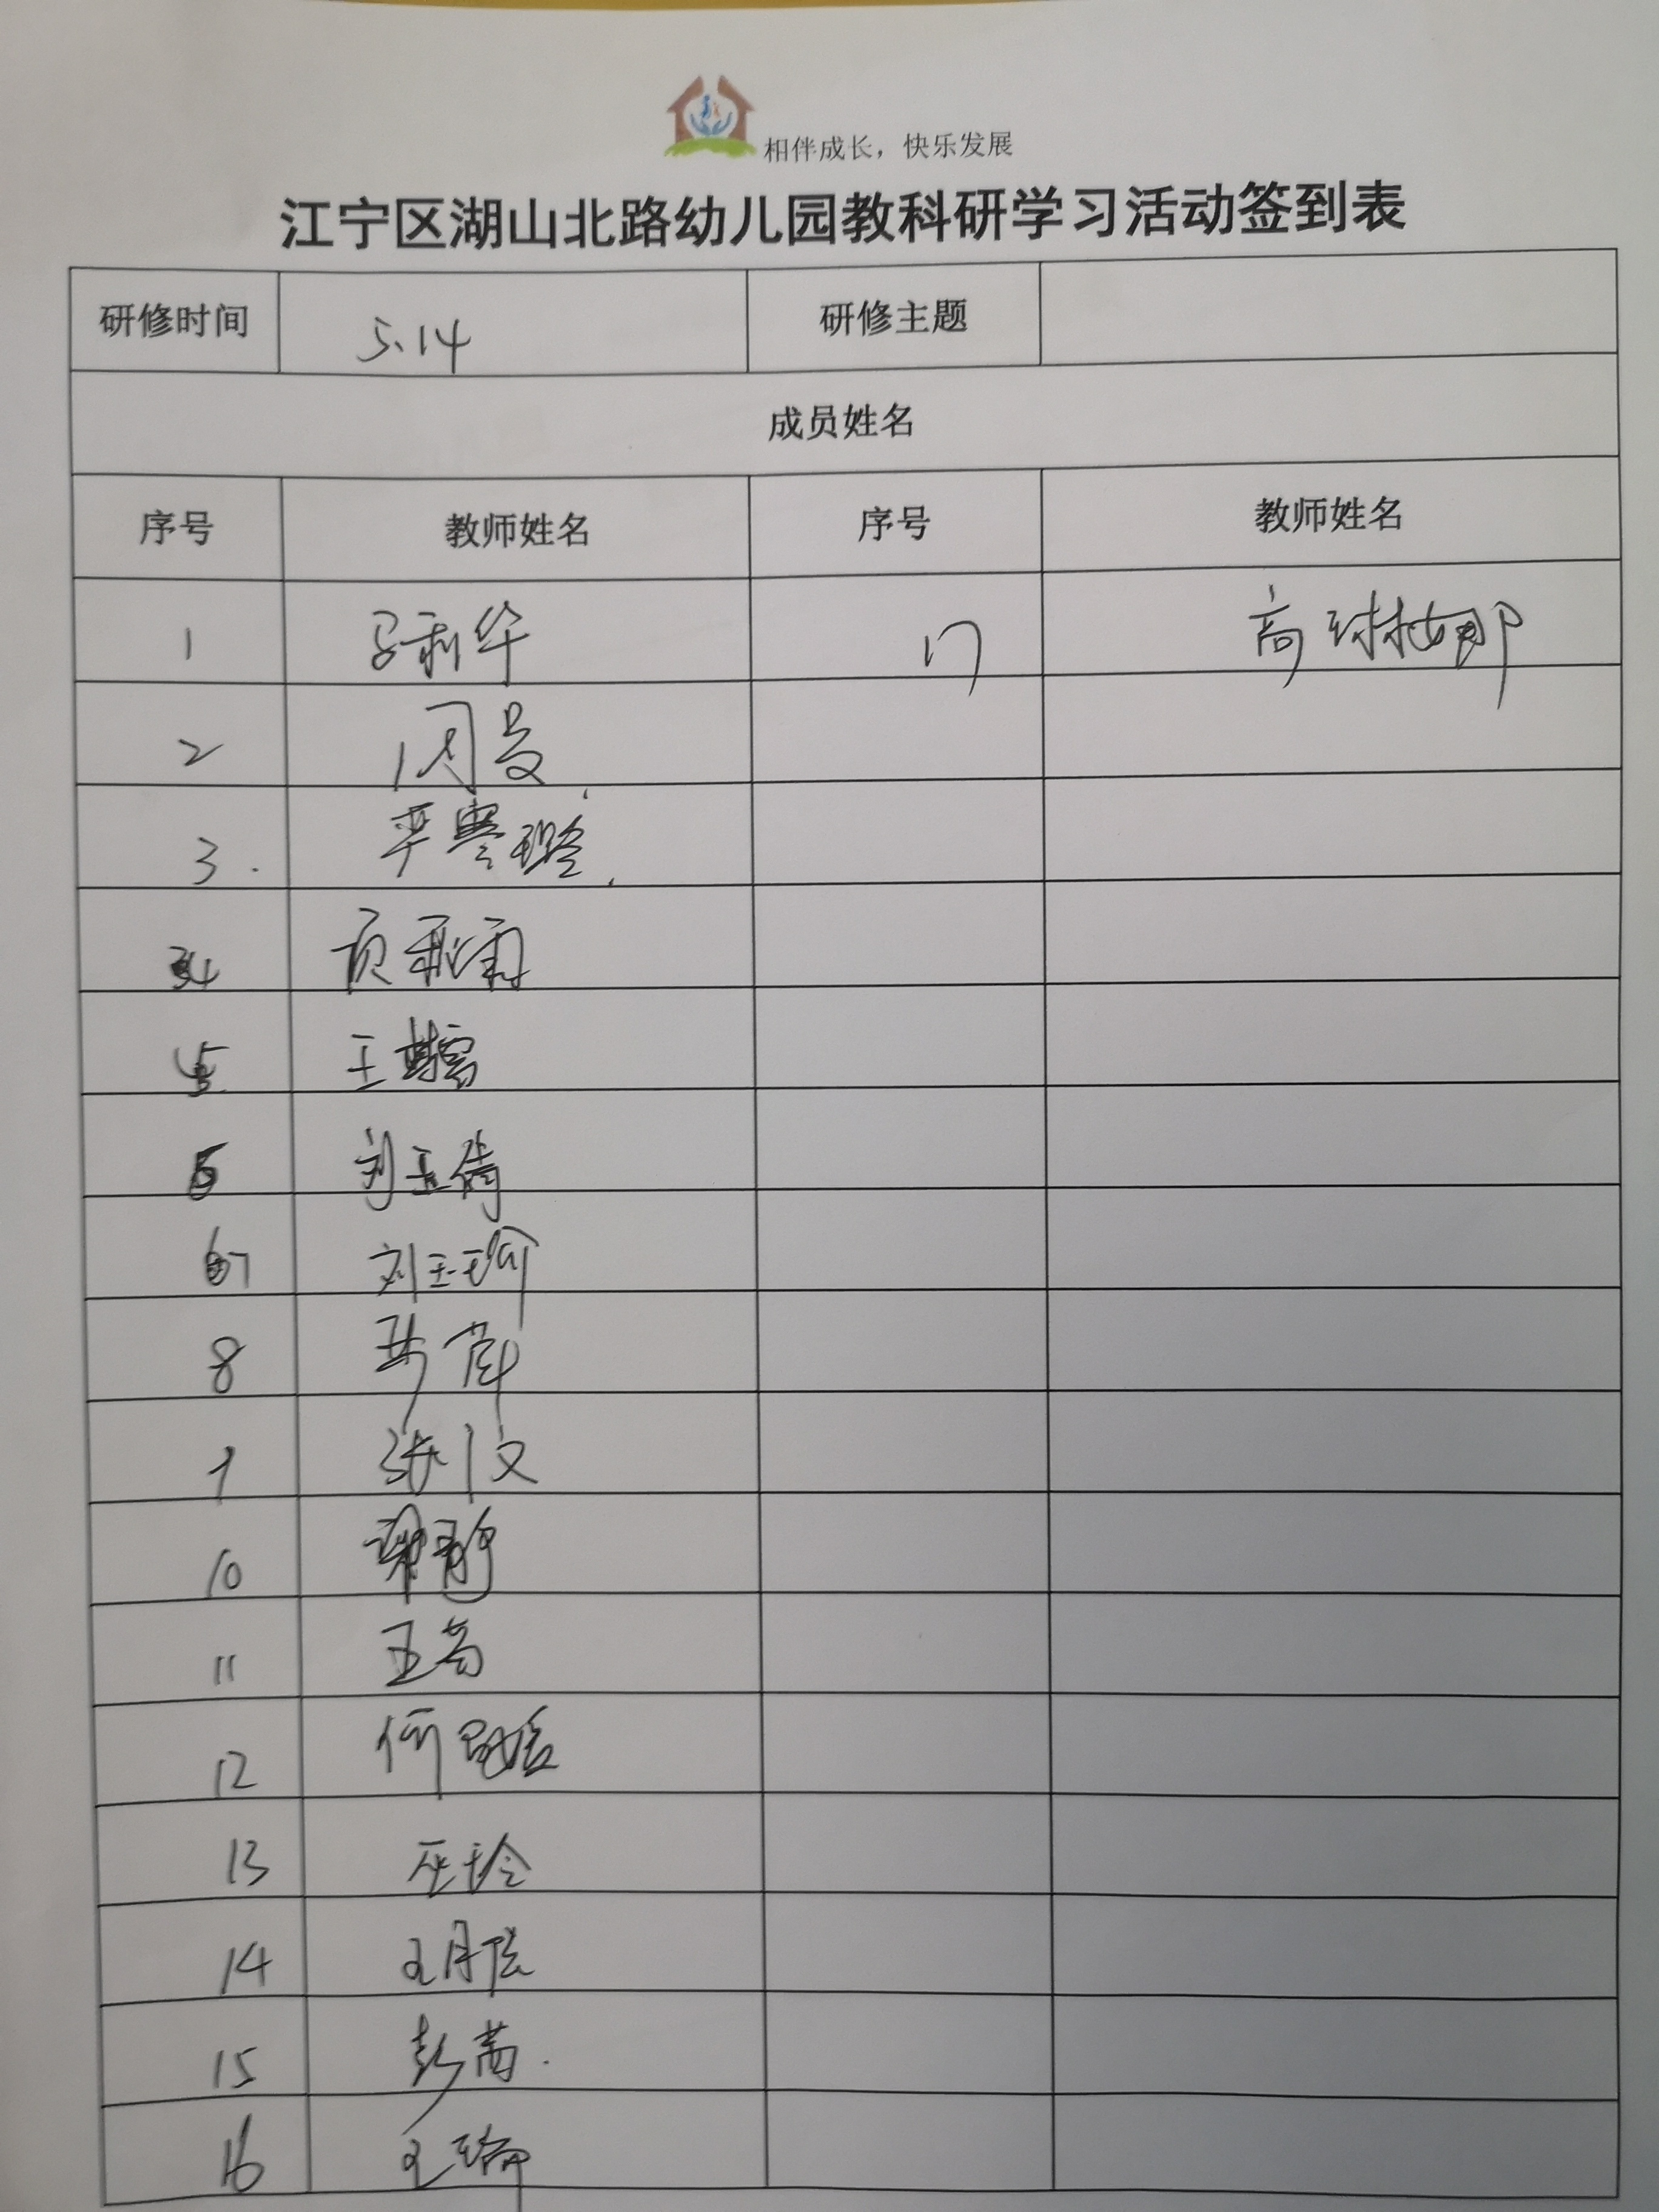 相伴成长，快乐发展
江宁区湖山北路幼儿园教科研学习活动签到表
研修时间 5.14 研修主题
成员姓名
序号 教师姓名 序号 教师姓名
1 马利华 17 高琳娜
2 周旻
3.
4
5 王
6 刘玉倩
7 刘玉瑜
8
9 张文
10 谢静
11 王芳
12 何
13 巫玲
14 王月
15 彭茜.
16 王瑜